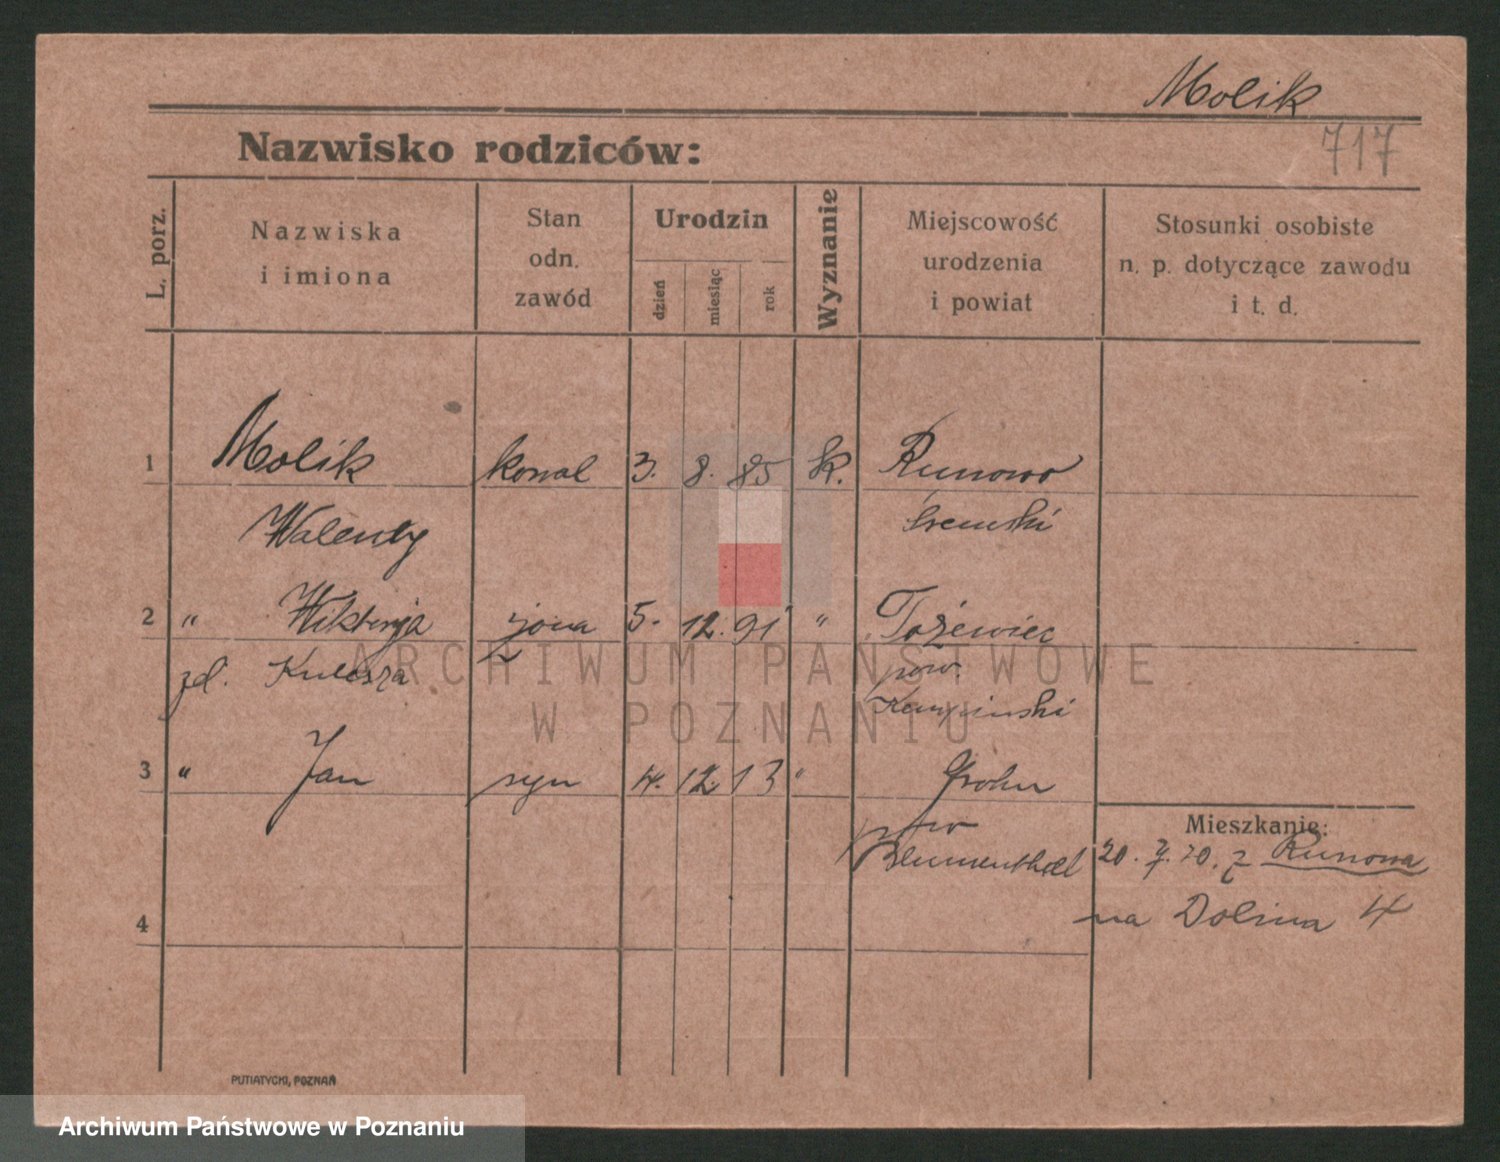 Molik
717
Nazwisko rodziców:
L. porz.
Nazwiska
i imiona
Stan
odn.
zawód
Urodzin
dzień
miesiąc
rok
Wyznanie
Miejscowość
urodzenia
i powiat
Stosunki osobiste
n. p. dotyczące zawodu
i t. d.
1 Molik kowal 3. 8. 85 k. Runowo
Walenty śremski
2 " Wiktorja żona 5. 12. 91 " Tożewiec
zd. Kulesza pow.
Kempinski
3 " Jan syn 4. 12 13 " Grohn
pow
Blumenthal
Mieszkanie:
20. 7. 20. z Runowa
na Dolina 4
4
PUTIATYCKI, POZNAŃ
ARCHIWUM PAŃSTWOWE
W POZNANIU
Archiwum Państwowe w Poznaniu